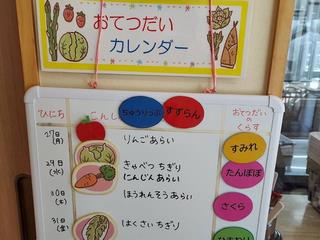 おてつだい
カレンダー
ひにち
こんしゅ
ちゅうりっぷ
すずらん
おてつだい
の
くらす
27日
(月)
りんごあらい
すみれ
29日
(水)
きゃべつちぎり
にんじんあらい
たんぽぽ
30日
(木)
ほうれんそうあらい
さくら
31日
(金)
はくさいちぎり
ひまわり